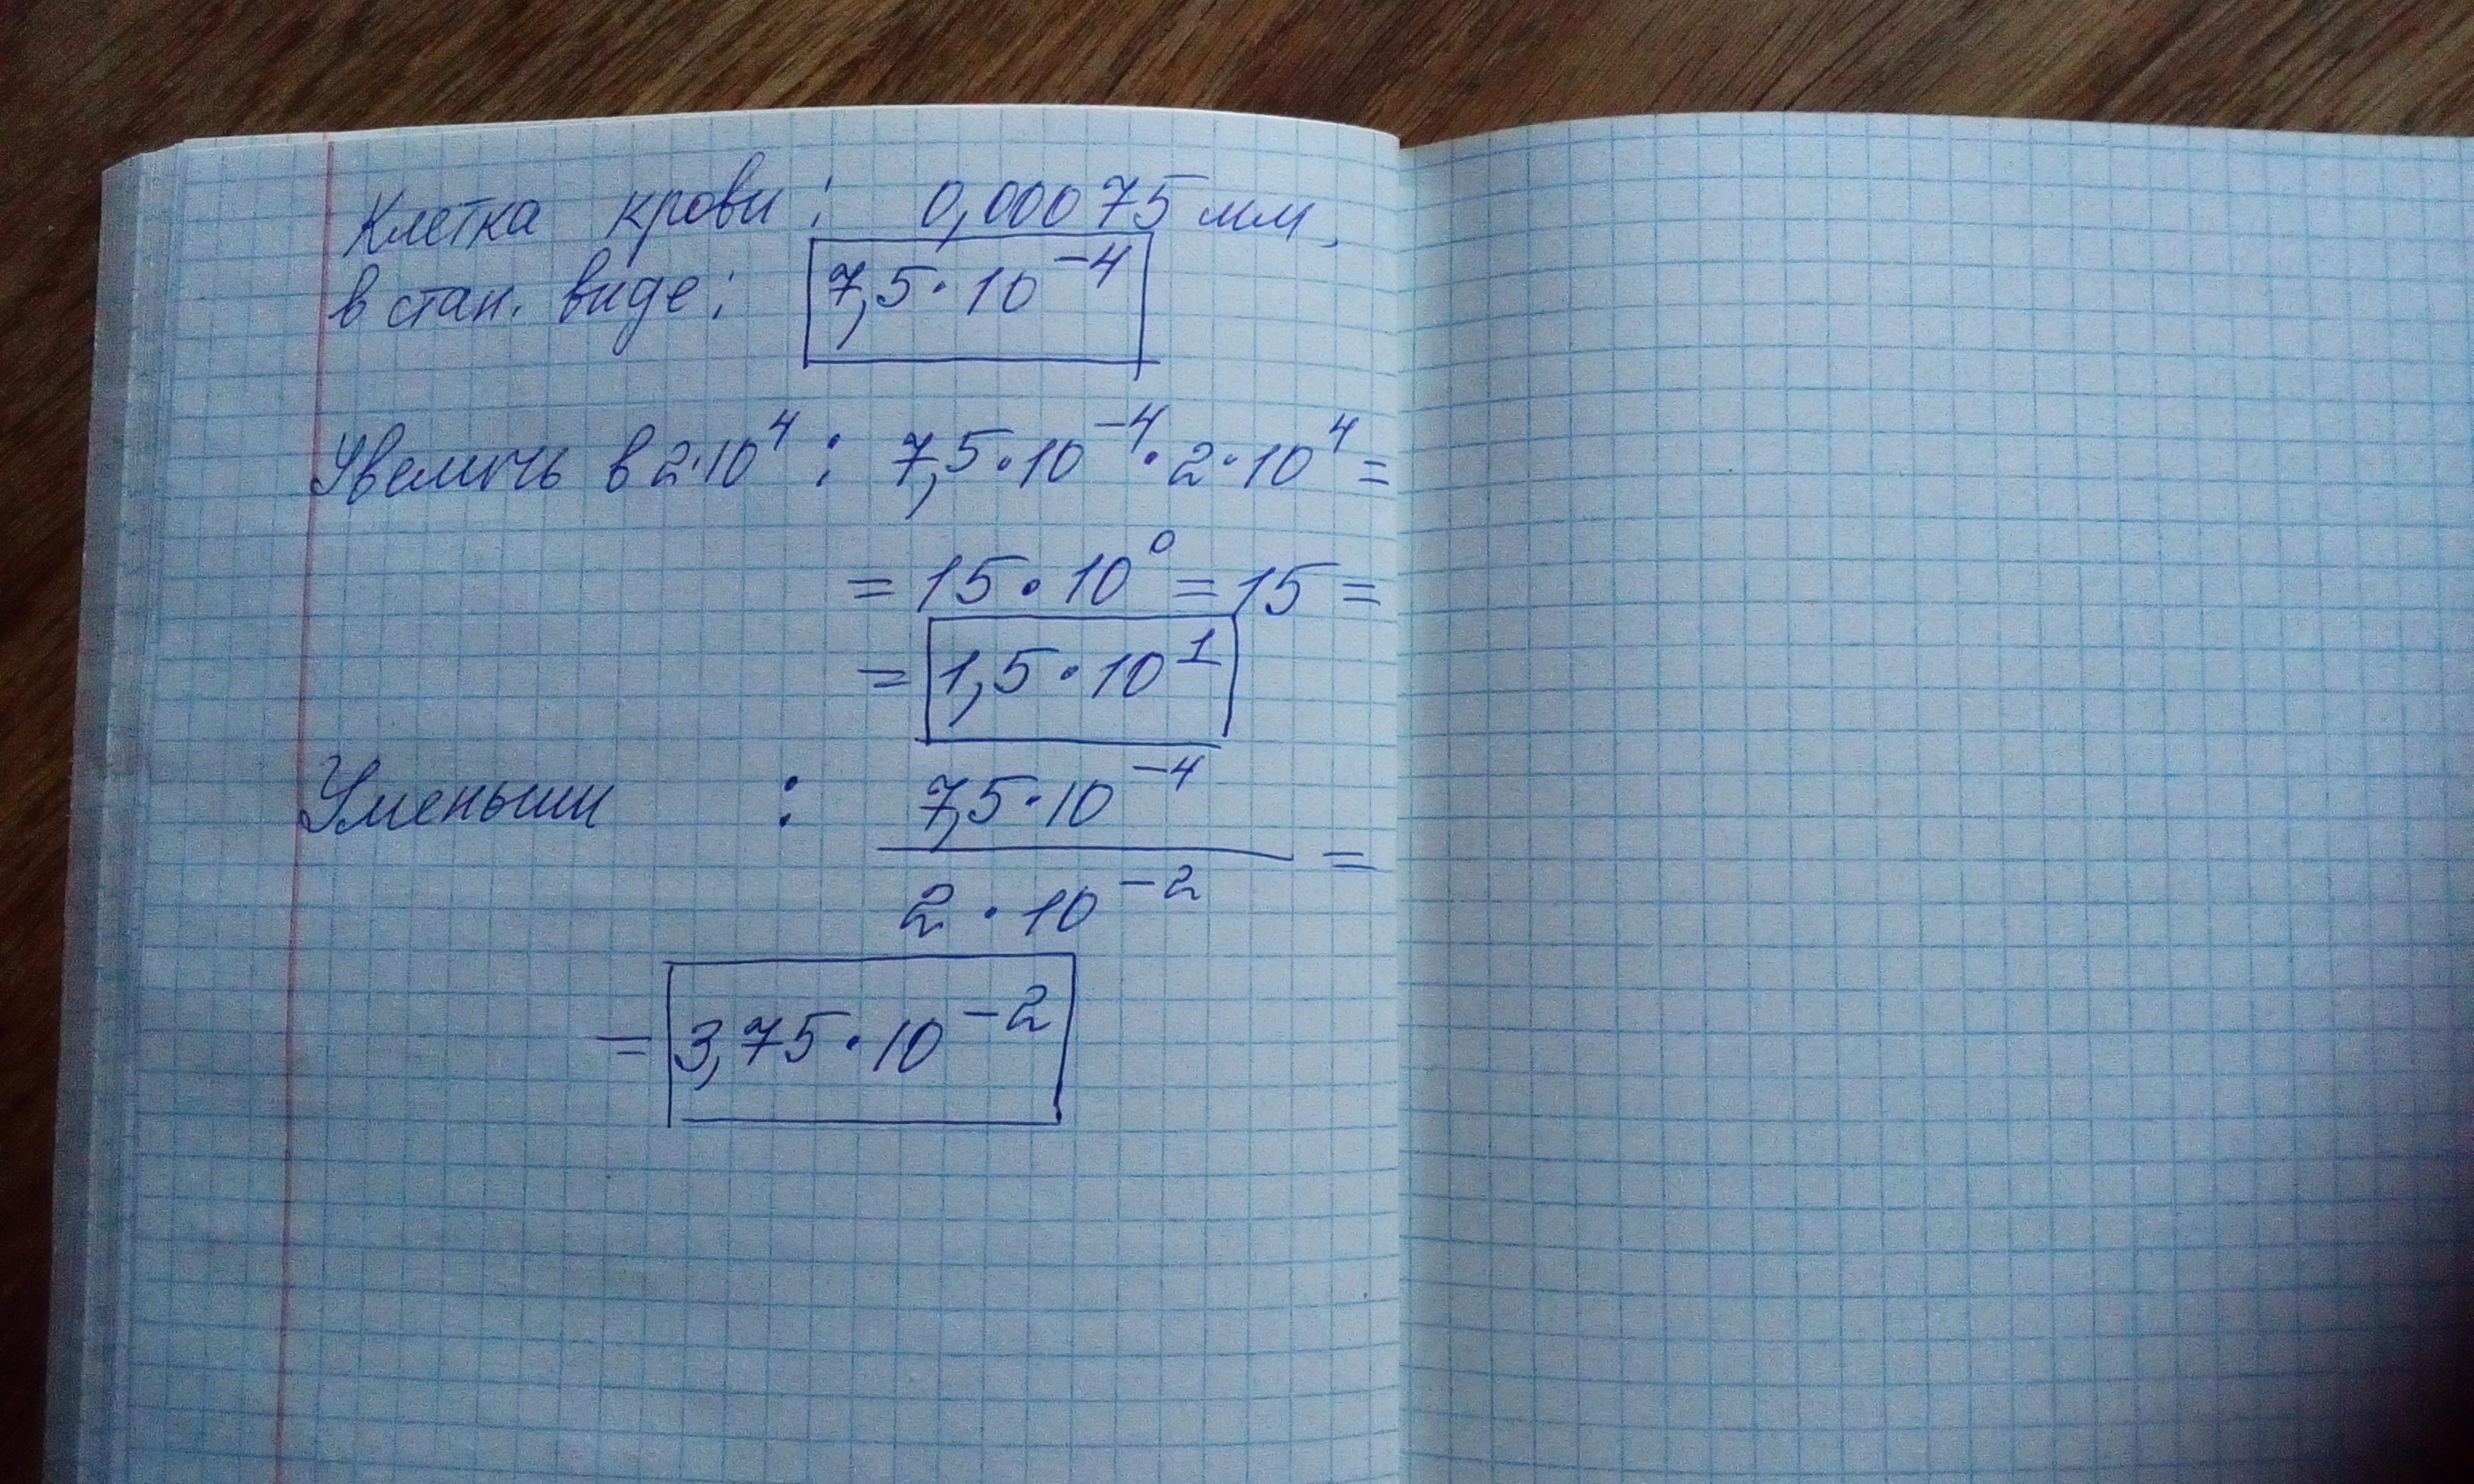 Клетка крови: 0,00075 мм,
в стан. виде: 7,5·10⁻⁴
Увеличь в 2·10⁴: 7,5·10⁻⁴·2·10⁴=
=15·10⁰=15=
=1,5·10¹
Уменьши : 7,5·10⁻⁴
=
2·10⁻²
=3,75·10⁻²